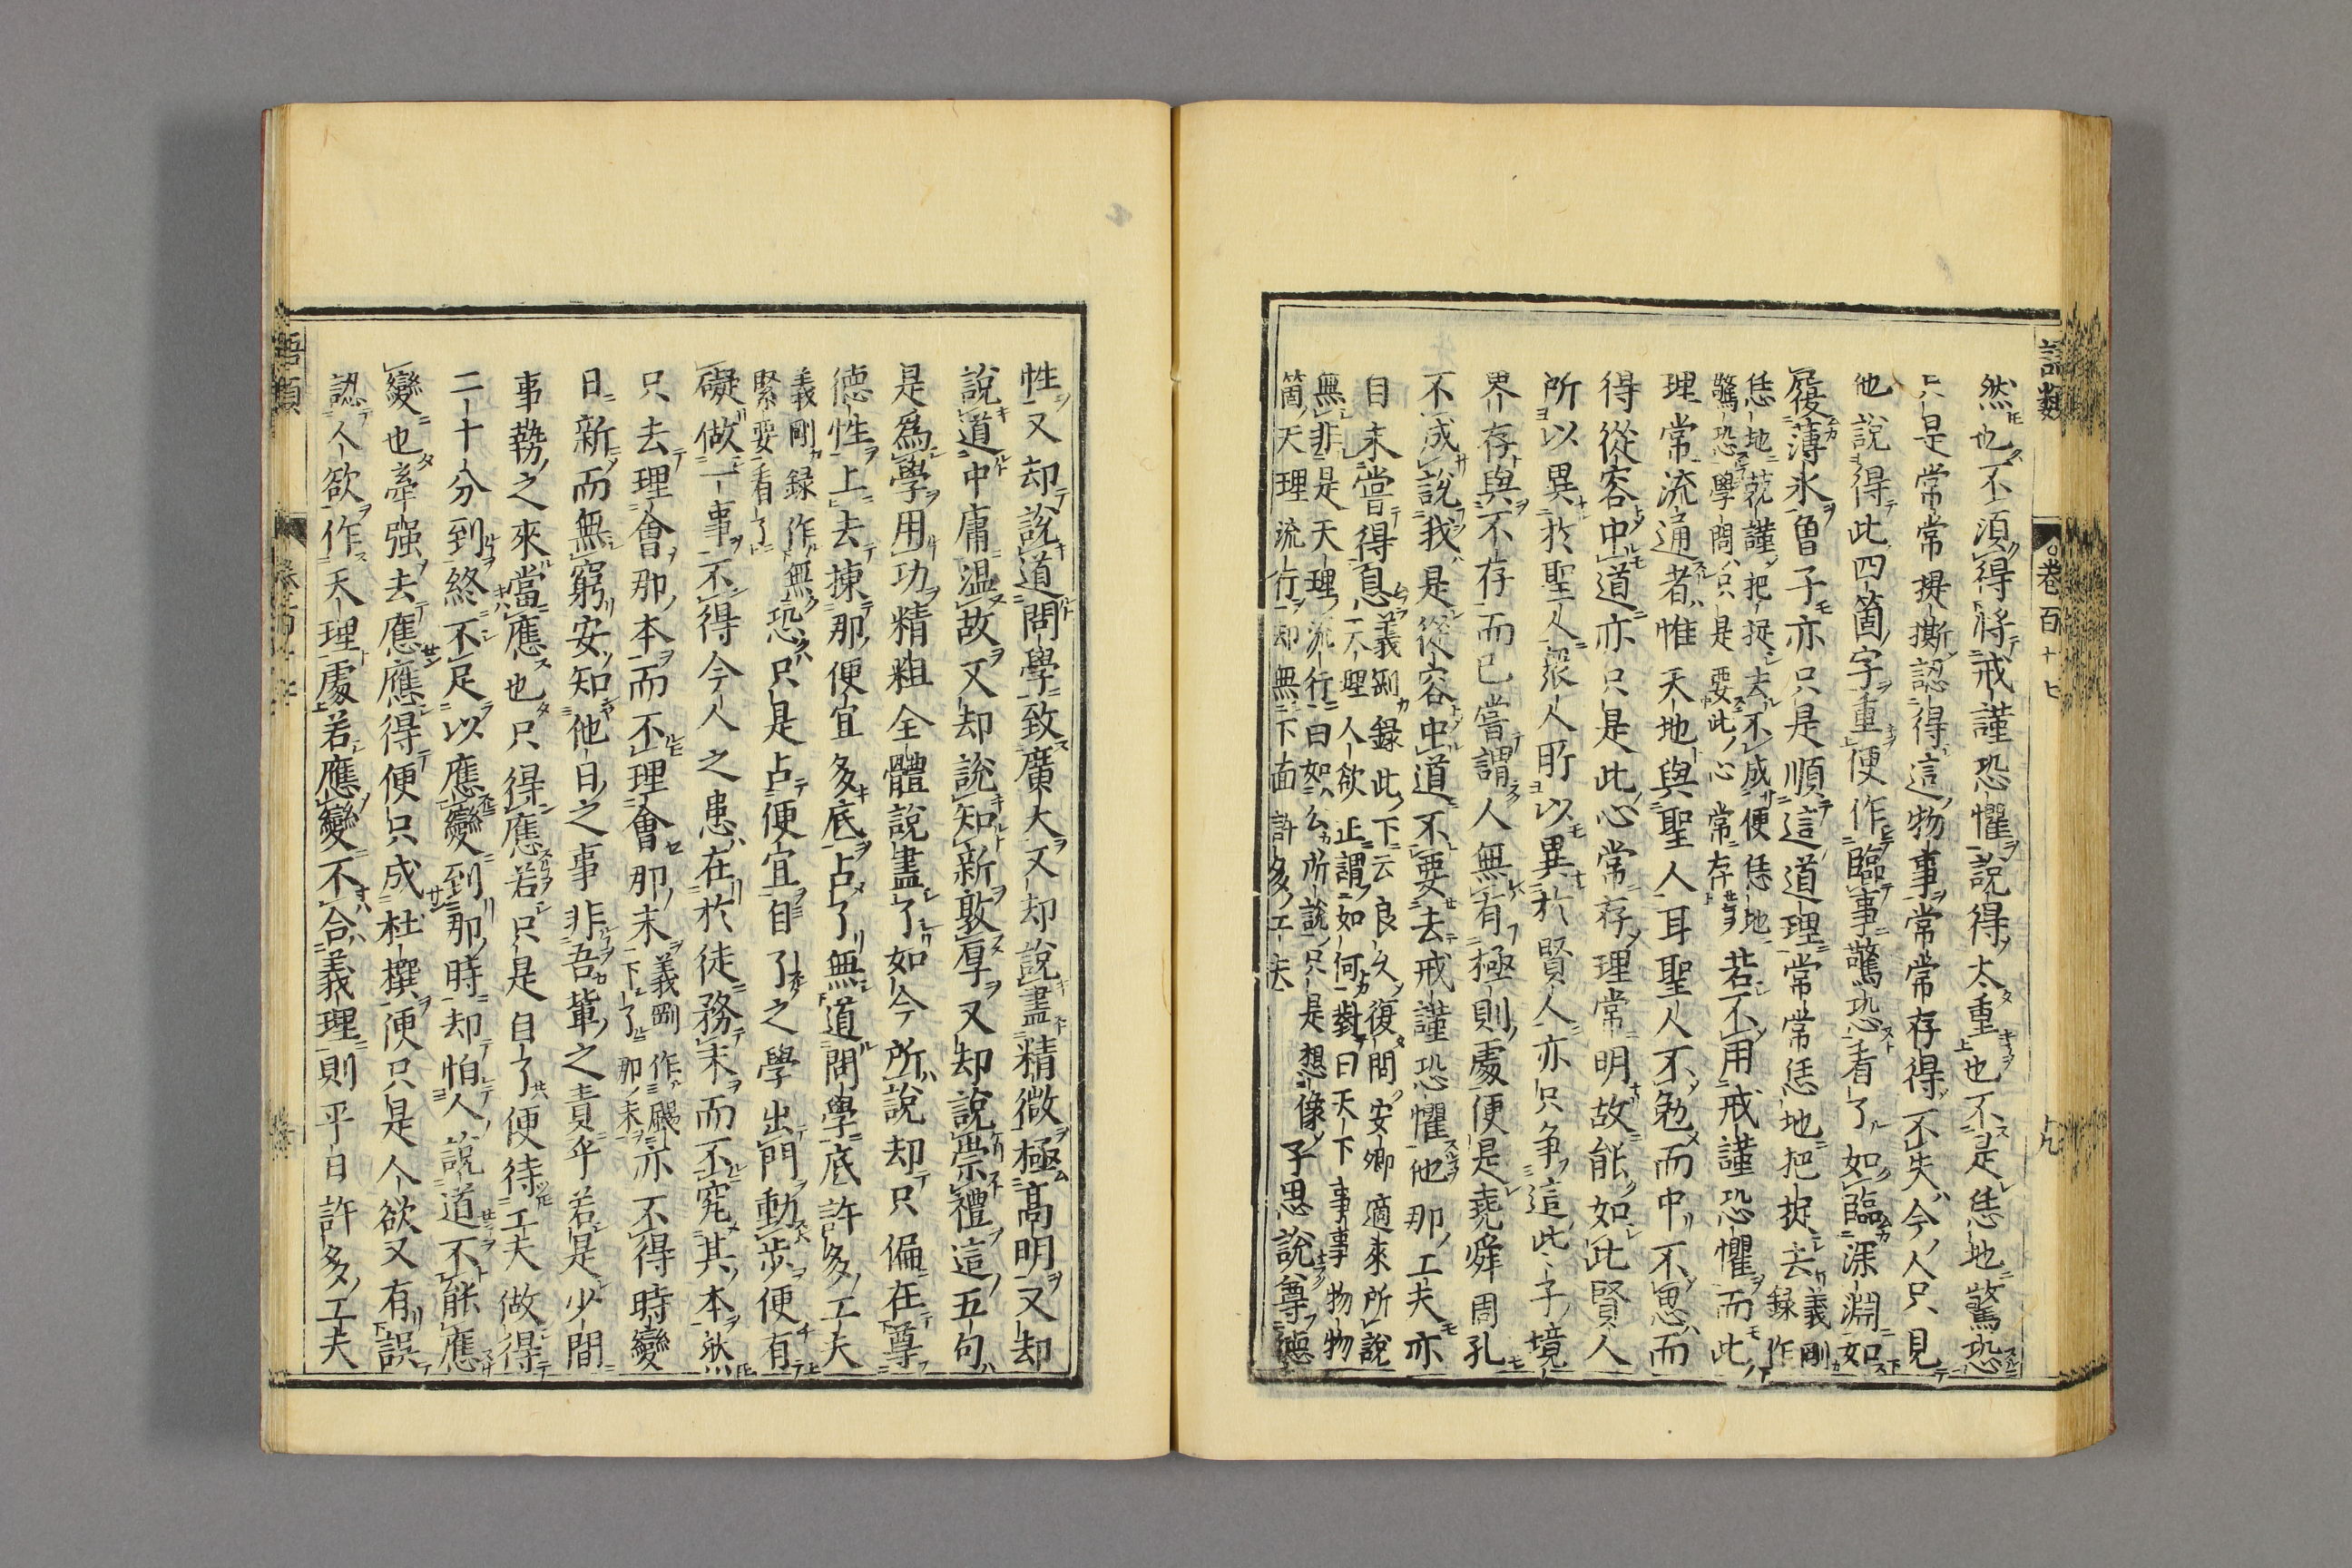 語類
卷百十七
十九
然也不須得將戒謹恐懼說得太重也不是恁地驚恐
只是常常提撕認得這物事常常存得不失今人只見
他說得此四箇字重便作臨事驚恐看了如臨深淵如
履薄氷曾子亦只是順這道理常常恁地把捉去義剛錄作
恁地兢謹把捉去不成便恁地
驚恐學問只是要此心常存
若不用戒謹恐懼而此
理常流通者惟天地與聖人耳聖人不勉而中不思而
得從容中道亦只是此心常存理常明故能如此賢人
所以異於聖人衆人所以異於賢人亦只争這些子境
界存與不存而已嘗謂人無有極則處便是堯舜周孔
不成說我是從容中道不要去戒謹恐懼他那工夫亦
自未嘗得息
義剛錄此下云良久復問安卿適來所說
天理人欲正謂如何對曰天下事事物物
無非是天理流行曰如公所說只是想像
箇天理流行却無下面許多工夫
子思說尊德
性又却說道問學致廣大又却說盡精微極高明又却
說道中庸溫故又却說知新敦厚又却說崇禮這五句
是爲學用功精粗全體說盡了如今所說却只偏在尊
德性上去揀那便宜多底占了無道問學底許多工夫
義剛錄作無
緊要看了
恐只是占便宜自了之學出門動步便有
礙做一事不得今人之患在於徒務末而不究其本然
只去理會那本而不理會那末
義剛作颺
下了那末
亦不得時變
日新而無窮安知他日之事非吾輩之責乎若是少間
事勢之來當應也只得應若只是自了便待工夫做得
二十分到終不足以應變到那時却怕人說道不能應
變也牽强去應應得便只成杜撰便只是人欲又有誤
認人欲作天理處若應變不合義理則平日許多工夫
語類